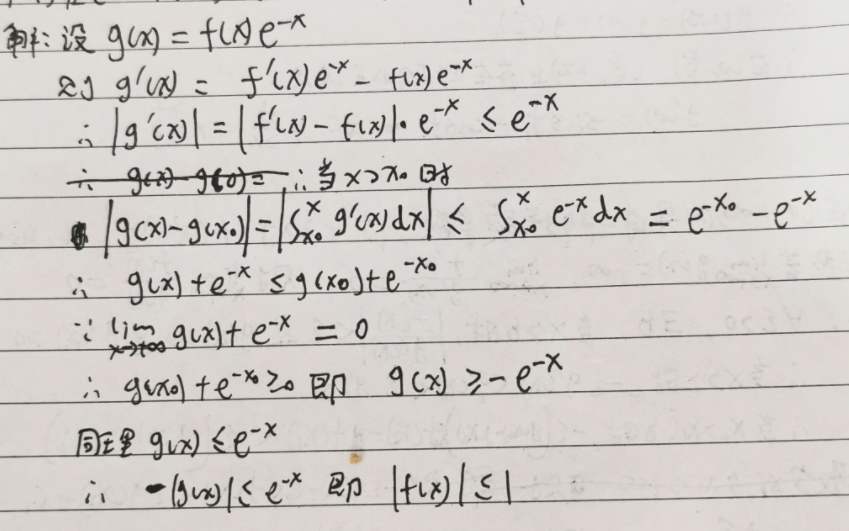 解:设 g(x) = f(x)e^{-x}
则 g'(x) = f'(x)e^{-x} - f(x)e^{-x}
∴ |g'(x)| = |f'(x) - f(x)|·e^{-x} ≤ e^{-x}
∴ g(x)-g(0)= ∴当x>x₀时
|g(x)-g(x₀)| = |∫_{x₀}^{x} g'(x)dx| ≤ ∫_{x₀}^{x} e^{-x}dx = e^{-x₀} - e^{-x}
∴ g(x)+e^{-x} ≤ g(x₀)+e^{-x₀}
∵ lim_{x→+∞} g(x)+e^{-x} = 0
∴ g(x₀)+e^{-x₀} ≥0 即 g(x) ≥ -e^{-x}
同理 g(x) ≤ e^{-x}
∴ |g(x)| ≤ e^{-x} 即 |f(x)| ≤ 1